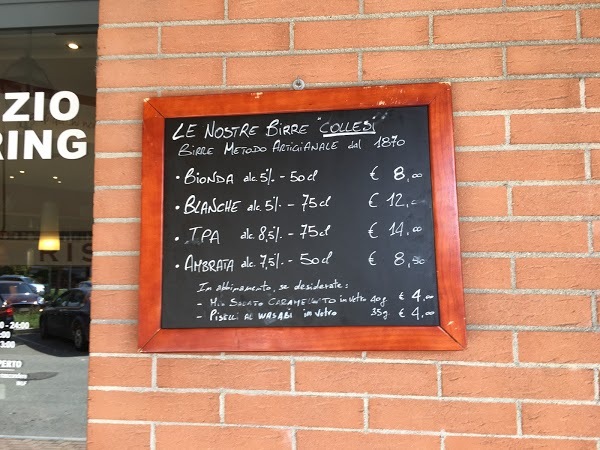 ZIO
RING
LE NOSTRE BIRRE "COLLESI"
BIRRE METODO ARTIGIANALE dal 1870
• BIONDA alc. 5% - 50cl € 8,00
• BLANCHE alc. 5% - 75cl € 12,00
• IPA alc. 8,5% - 75cl € 14,00
• AMBRATA alc. 7,5% - 50cl € 8,50
In abbinamento, se desiderate:
- MIX SALATO in vetro 40g € 4,00
- PISELLI AL WASABI in vetro 35g € 4,00
RIS
- 24:00
PERTO